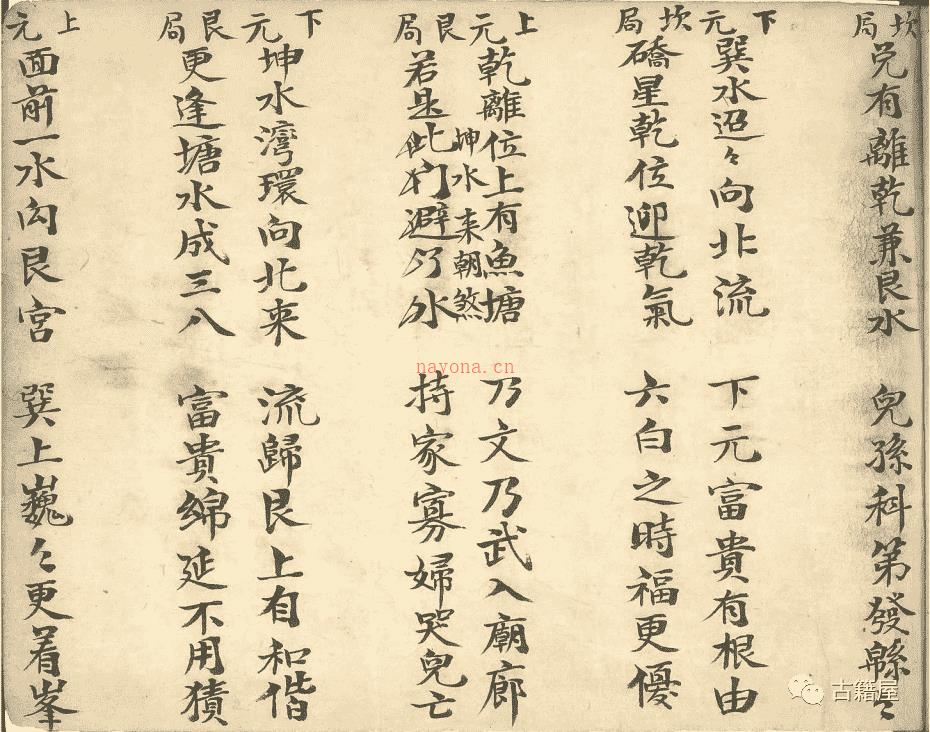 坎局
兌有離乾兼艮水 兒孫科第發緜々
下元坎局
巽水迢々向北流 下元富貴有根由
礄星乾位迎乾氣 六白之時福更優
上元艮局
乾離位上有魚塘 乃文乃武入廟廊
坤水来朝煞
若是此避水 持家寡婦哭兒亡
下元艮局
坤水灣環向北来 流歸艮上自和偕
更逢塘水成三八 富貴綿延不用
上元
面前一水向艮宮 巽上巍々更着峯
nayona.cn
古籍屋